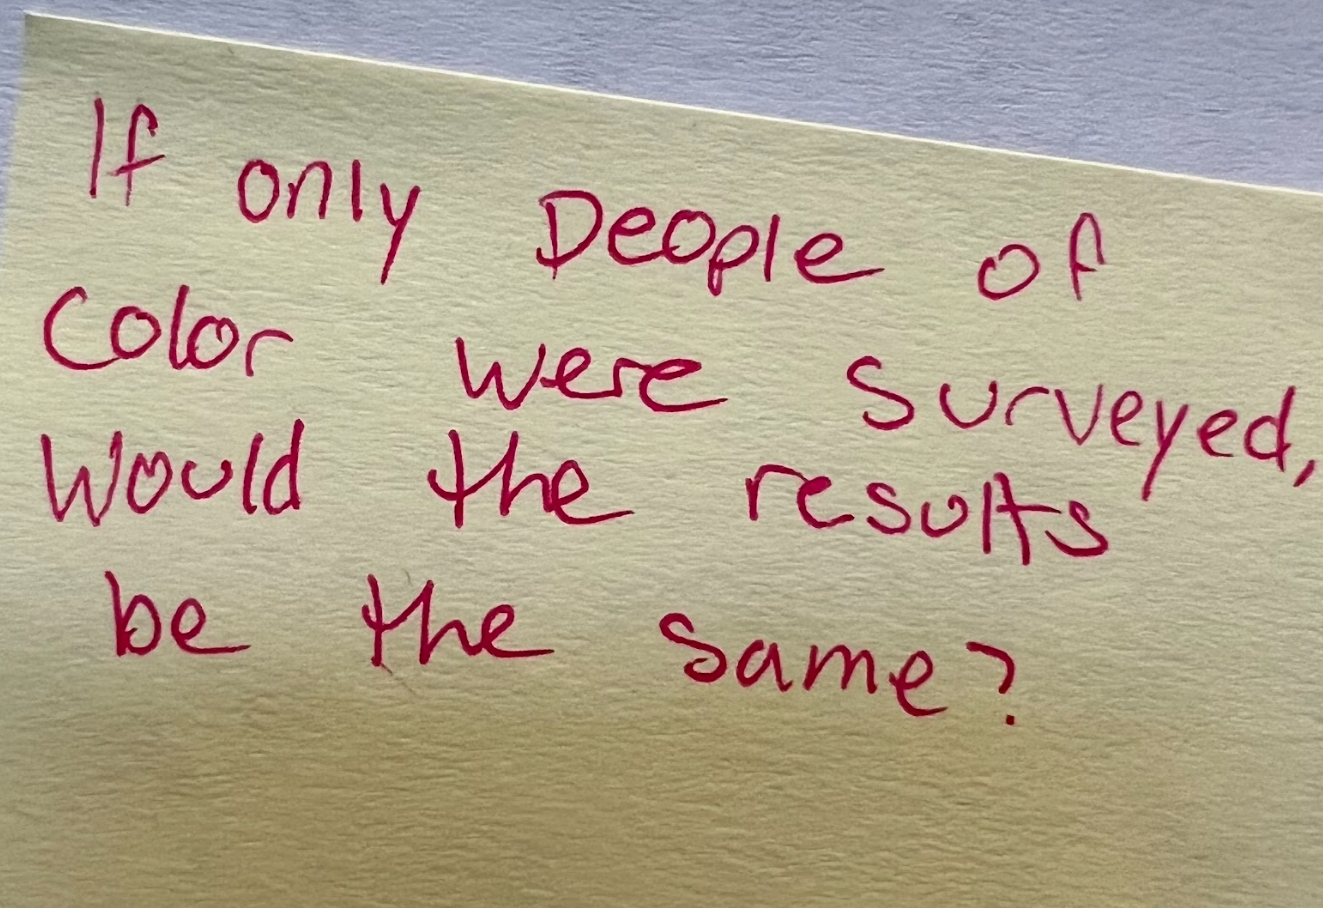 If only People of
Color were surveyed,
Would the results
be the same?